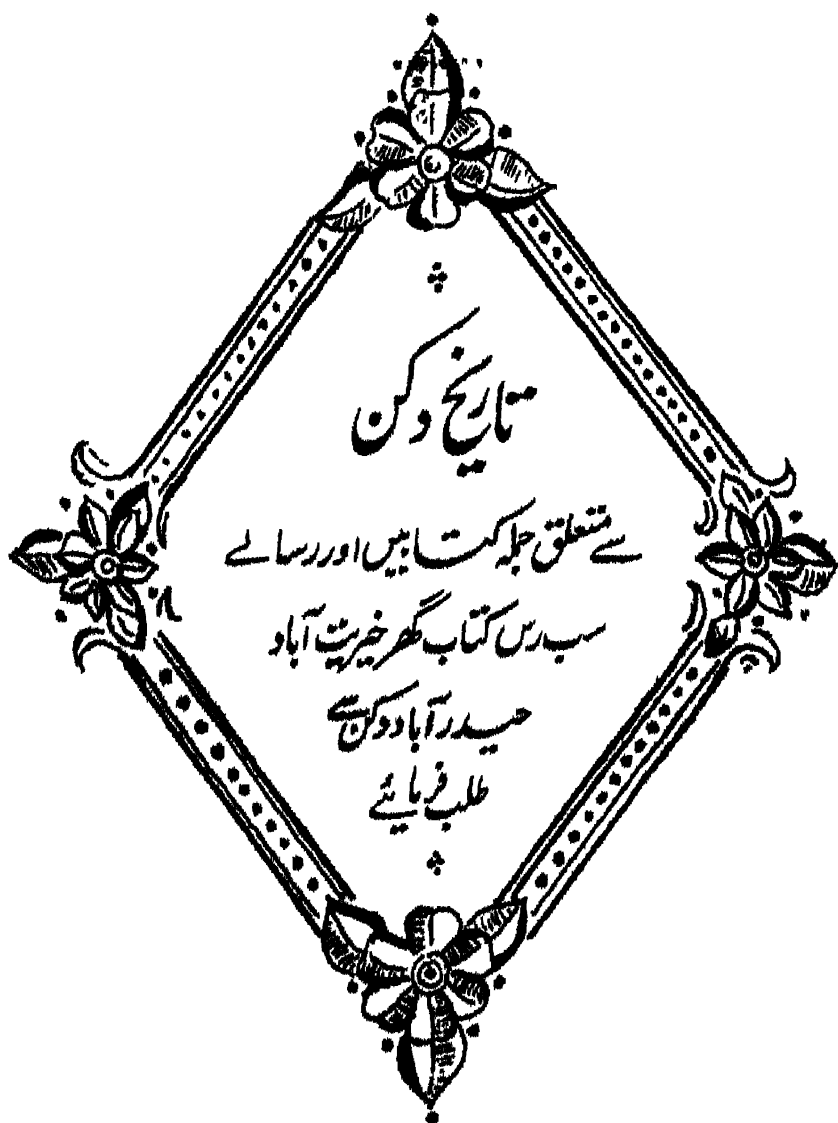 تاریخ دکن
سے متعلق جملہ کتابیں اور رسالے
سب رس کتاب گھر خیریت آباد
حیدرآباد دکن سے
طلب فرمایئے